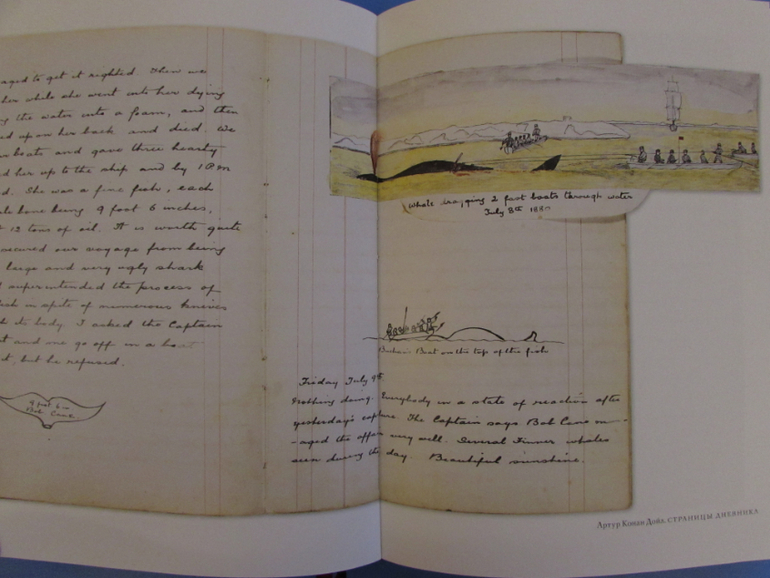 aged to get it righted. Then we
her while she went into her dying
the water into a foam, and then
ed upon her back and died. We
boats and gave three hearty
ed her up to the ship and by 1 AM
d. She was a fine fish, each
bone being 9 foot 6 inches,
12 tons of oil. It is worth quite
secured our voyage from being
large and very ugly shark
superintended the process of
in spite of numerous knives
its body. I asked the Captain
and one go off in a boat
it, but he refused.
9 foot 6 in
Bob Cane
Whale dragging 2 fast boats through water
July 8th 1880
Boat on the top of the fish
Friday July 9th.
Nothing doing. Everybody in a state of reaction after
yesterday's capture. The Captain says Bob Cane man-
-aged the affair very well. Several Finner whales
seen during the day. Beautiful sunshine.
Артур Конан Дойл. СТРАНИЦЫ ДНЕВНИКА